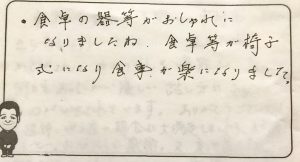 ・食卓の器等がおしゃれに
なりましたね、食卓等が椅子
式になり食事が楽になりました。